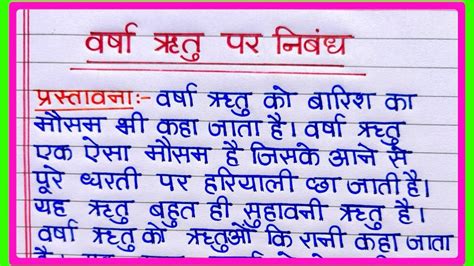 वर्षा ऋतु पर निबंध
प्रस्तावनाः- वर्षा ऋतु को बारिश का
मौसम भी कहा जाता है। वर्षा ऋतु
एक ऐसा मौसम है जिसके आने से
पूरे धरती पर हरियाली छा जाती है।
यह ऋतु बहुत ही सुहावनी ऋतु है।
वर्षा ऋतु को ऋतुओं कि रानी कहा जाता
है।